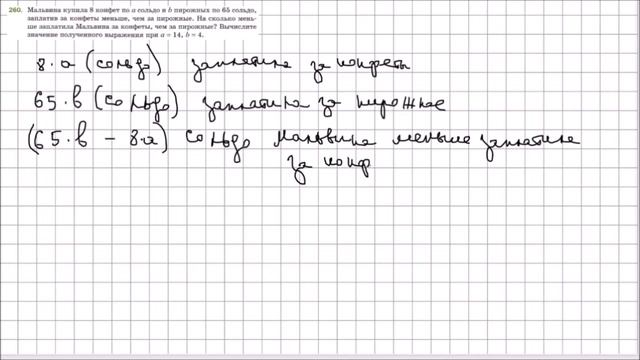 260. Мальвина купила 8 конфет по a сольдо и b пирожных по 65 сольдо,
заплатив за конфеты меньше, чем за пирожные. На сколько мень-
ше заплатила Мальвина за конфеты, чем за пирожные? Вычислите
значение полученного выражения при a = 14, b = 4.
8·a (сольдо) заплатила за конфеты
65·b (сольдо) заплатила за пирожное
(65·b - 8·a) сольдо Мальвина меньше заплатила
за конф